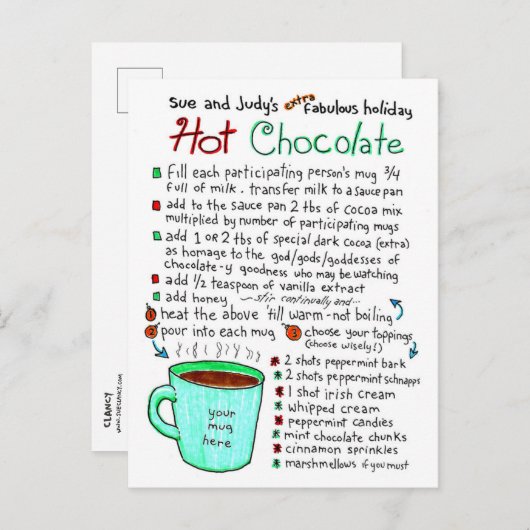 Sue and Judy's extra fabulous holiday
Hot Chocolate
Fill each participating person's mug 3/4
full of milk. transfer milk to a sauce pan
add to the sauce pan 2 tbs of cocoa mix
multiplied by number of participating mugs
add 1 OR 2 tbs of special dark cocoa (extra)
as homage to the god/gods/goddesses of
chocolate-y goodness who may be watching
add 1/2 teaspoon of vanilla extract
add honey ~stir continually and...
1 heat the above 'till warm-not boiling
2 pour into each mug 3 choose your toppings
(choose wisely!)
2 shots peppermint bark
2 shots peppermint schnapps
1 shot irish cream
whipped cream
peppermint candies
mint chocolate chunks
cinnamon sprinkles
marshmallows if you must
your
mug
here
CLANCY
www.sueclancy.com